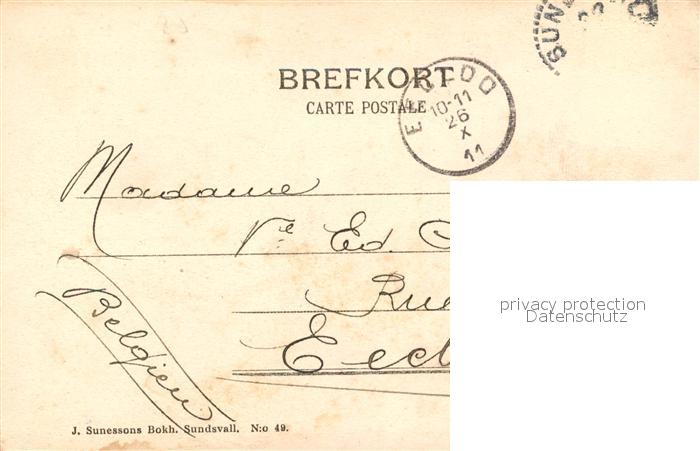 SUN
BREFKORT
CARTE POSTALE
10-11
26
X
11
Madame
Vᵉ Ed.
Rue
Eecl
Belgien
privacy protection
Datenschutz
J. Sunessons Bokh. Sundsvall. N:o 49.